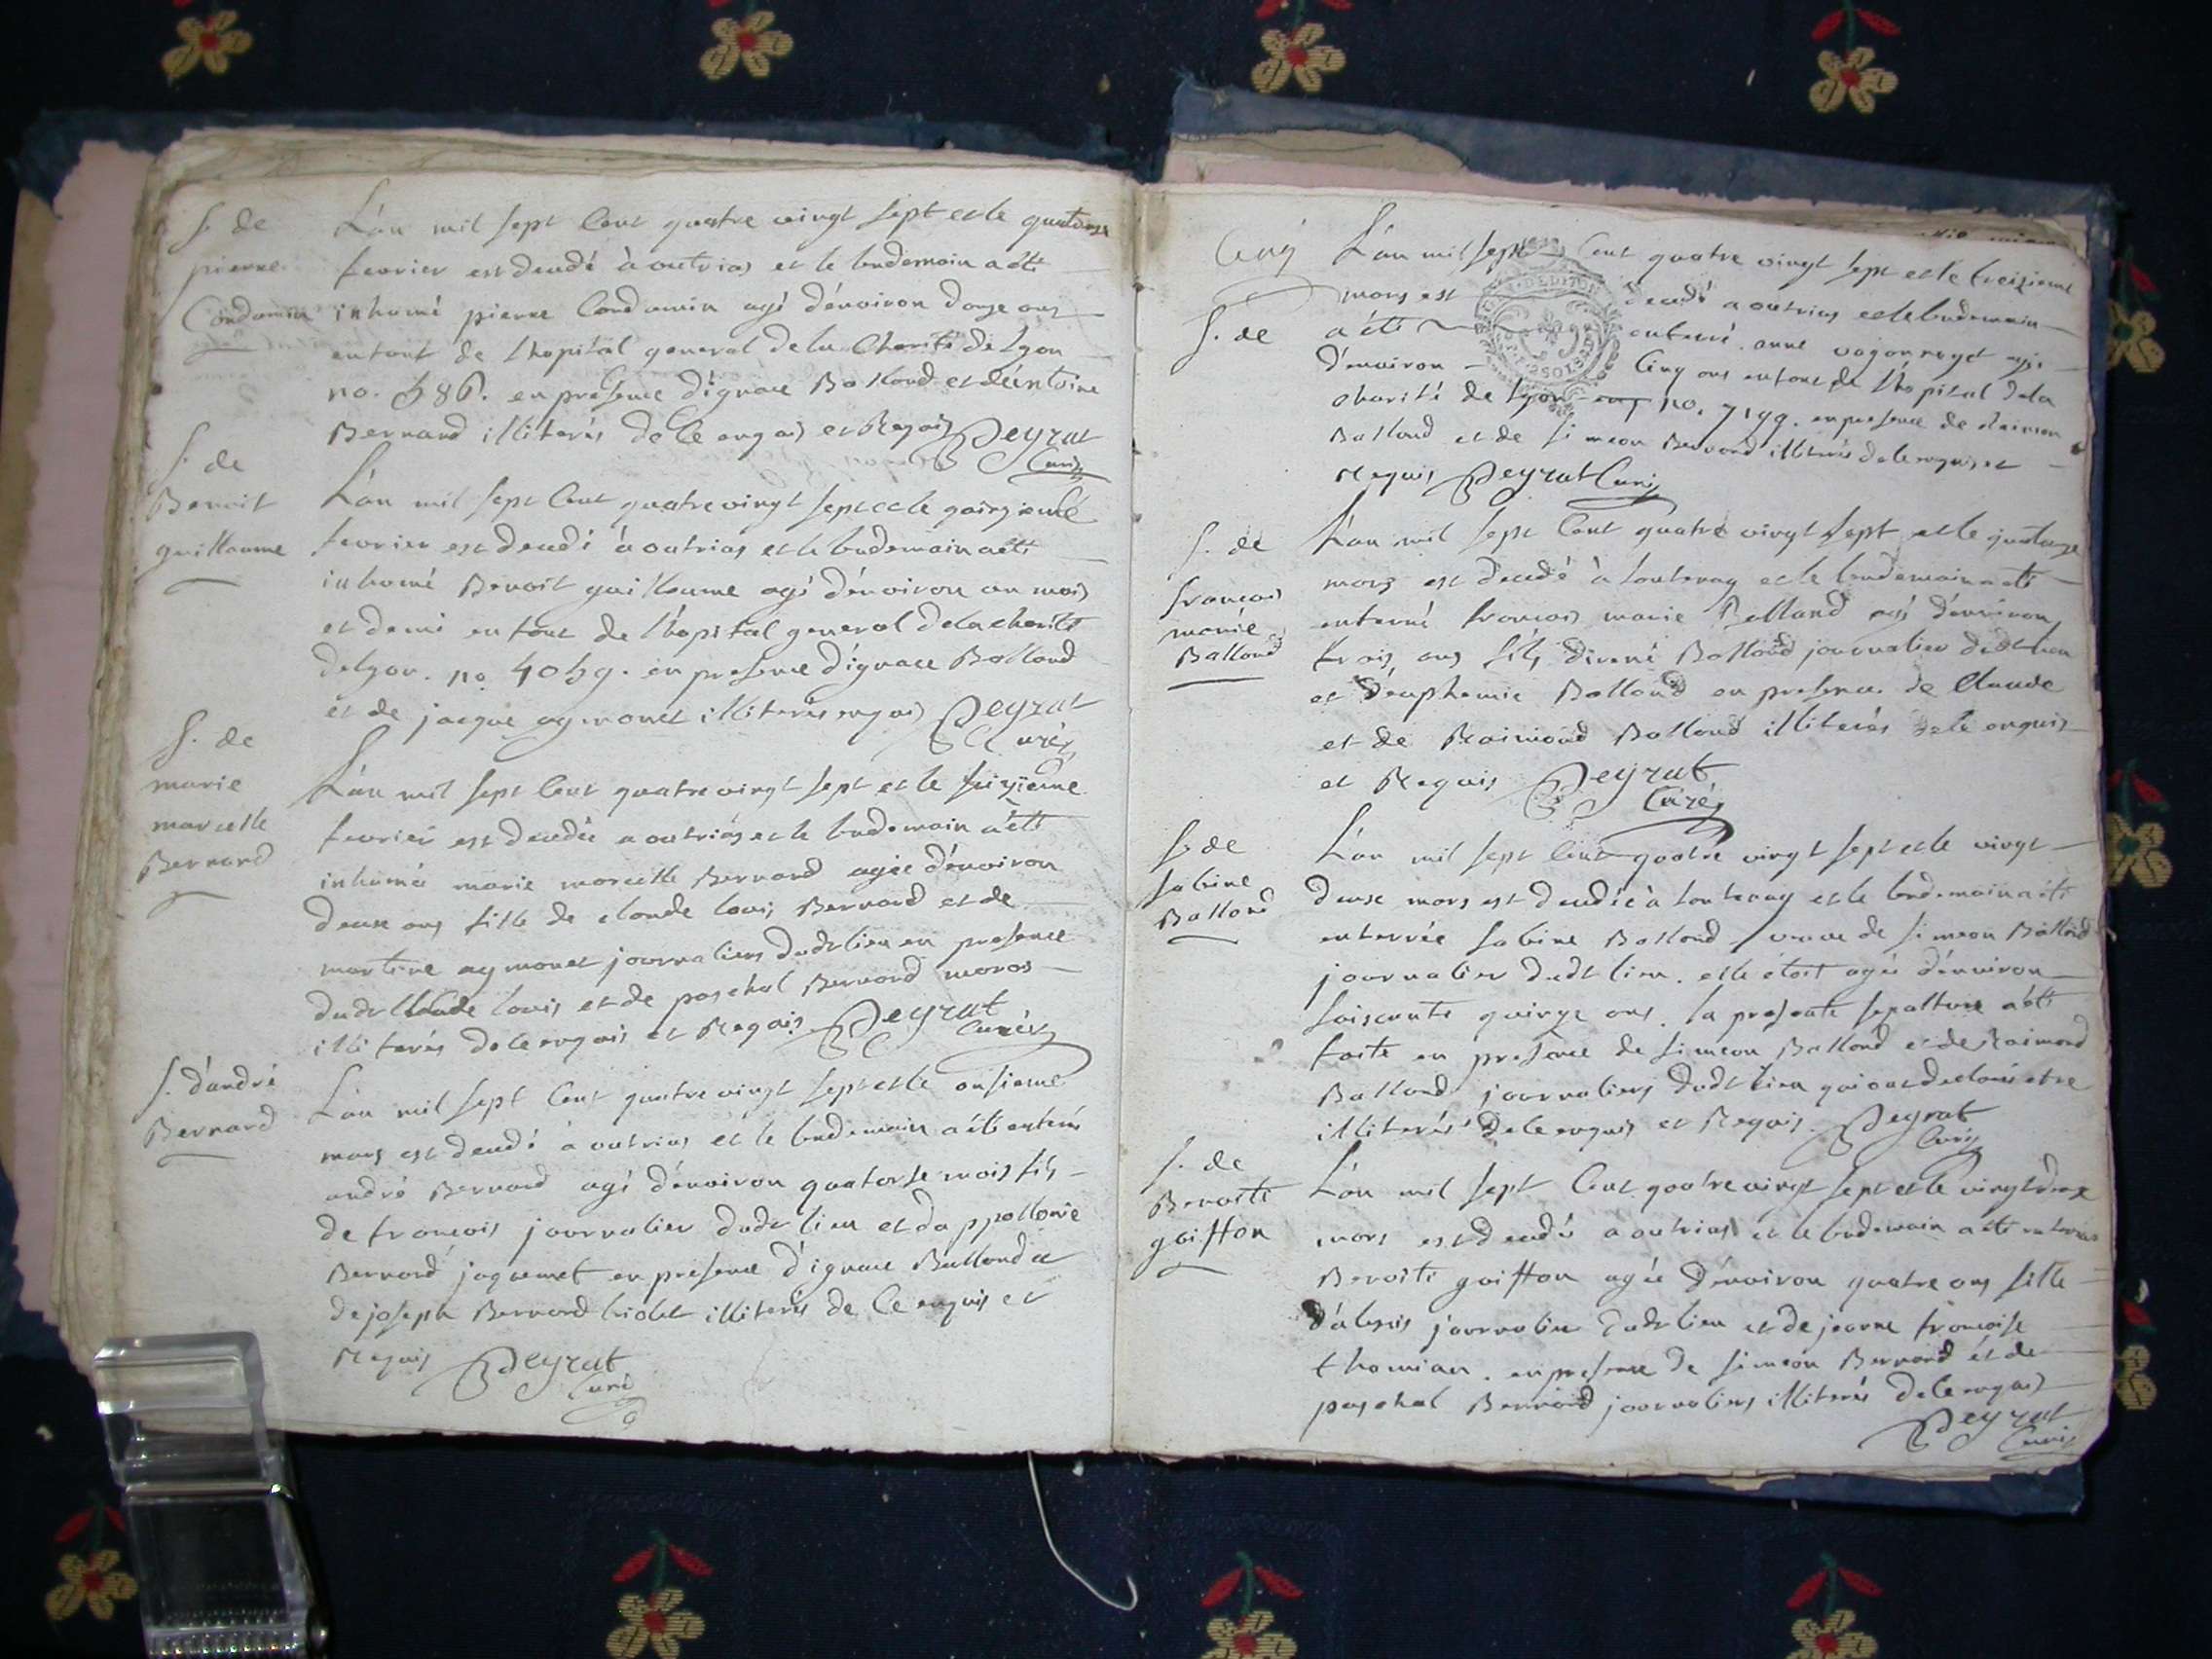 S. de
pierre
Condamin
L'an mil sept Cent quatre vingt sept et le quatorze
fevrier est decedé à outrias et le lendemain a eté
inhumé pierre Condamin agé d'environ douze ans
enfant de l'hopital general de la Charité de Lyon
no. 586. en presence d'ignace Balland et d'entoine
Bernard illiterés de ce enquis et Requis Peyrat
Curé
S. de
Benoit
guillaume
L'an mil sept Cent quatre vingt sept et le quinzieme
fevrier est decedé à outrias et le lendemain a eté
inhumé Benoit guillaume agé d'environ un mois
et demi enfant de l'hopital general de la charité
de lyon. no 4059. en presence d'ignace Balland
et de jacque aymonet illiterés enquis Peyrat
Curé
S. de
marie
marcelle
Bernard
L'an mil sept Cent quatre vingt sept et le seizieme
fevrier est decedée a outrias et le lendemain a eté
inhumée marie marcelle Bernard agée d'environ
deux ans fille de claude louis Bernard et de
martine aymonet journaliers dudt lieu en presence
dudt Claude louis et de paschal Bernard
illiterés de ce enquis et Requis Peyrat
Curé
S. d'andré
Bernard
L'an mil sept Cent quatre vingt sept et le onsieme
mars est decedé à outrias et le lendemain a eté enterré
andré Bernard agé d'environ quatorse mois fils
de francois journalier dudt lieu et d'appollonie
Bernard jaquemet en presence d'ignace Balland et
de joseph Bernard illiterés de ce enquis et
Requis Peyrat
Curé
Cinq
S. de
L'an mil sept Cent quatre vingt sept et le treizieme
mars est decedé a outrias et le lendemain
a eté enterré anne agé
d'environ Cinq ans enfant de l'hopital de la
charité de Lyon no. 7199. en presence de
Balland et de simeon Bernard illiterés de ce enquis et
Requis Peyrat Curé
S. de
francois
marie
Balland
L'an mil sept Cent quatre vingt sept et le quatorze
mars est decedé à lantenay et le lendemain a eté
enterré francois marie Balland agé d'environ
trois ans fils Balland journalier dudt lieu
et d'euphemie Balland en presence de Claude
et de Raimond Balland illiterés de ce enquis
et Requis Peyrat
Curé
S. de
sabine
Balland
L'an mil sept Cent quatre vingt sept et le vingt
deux mars est decedée à lantenay et le lendemain a eté
enterrée sabine Balland veuve de simeon Balland
journalier dudt lieu. elle etoit agée d'environ
soiscante quinze ans. la presente sepulture a eté
faite en presence de simeon Balland et de Raimond
Balland journaliers dudt lieu qui ont declaré etre
illiterés de ce enquis et Requis. Peyrat
Curé
S. de
Benoite
goiffon
L'an mil sept Cent quatre vingt sept et le vingt deux
mars est decedée a outrias et le lendemain a eté enterrée
Benoite goiffon agée d'environ quatre ans fille
d'alexis journalier dudt lieu et de jeanne francoise
thomian. en presence de simeon Bernard et de
paschal Bernard journaliers illiterés de ce enquis
Peyrat
Curé